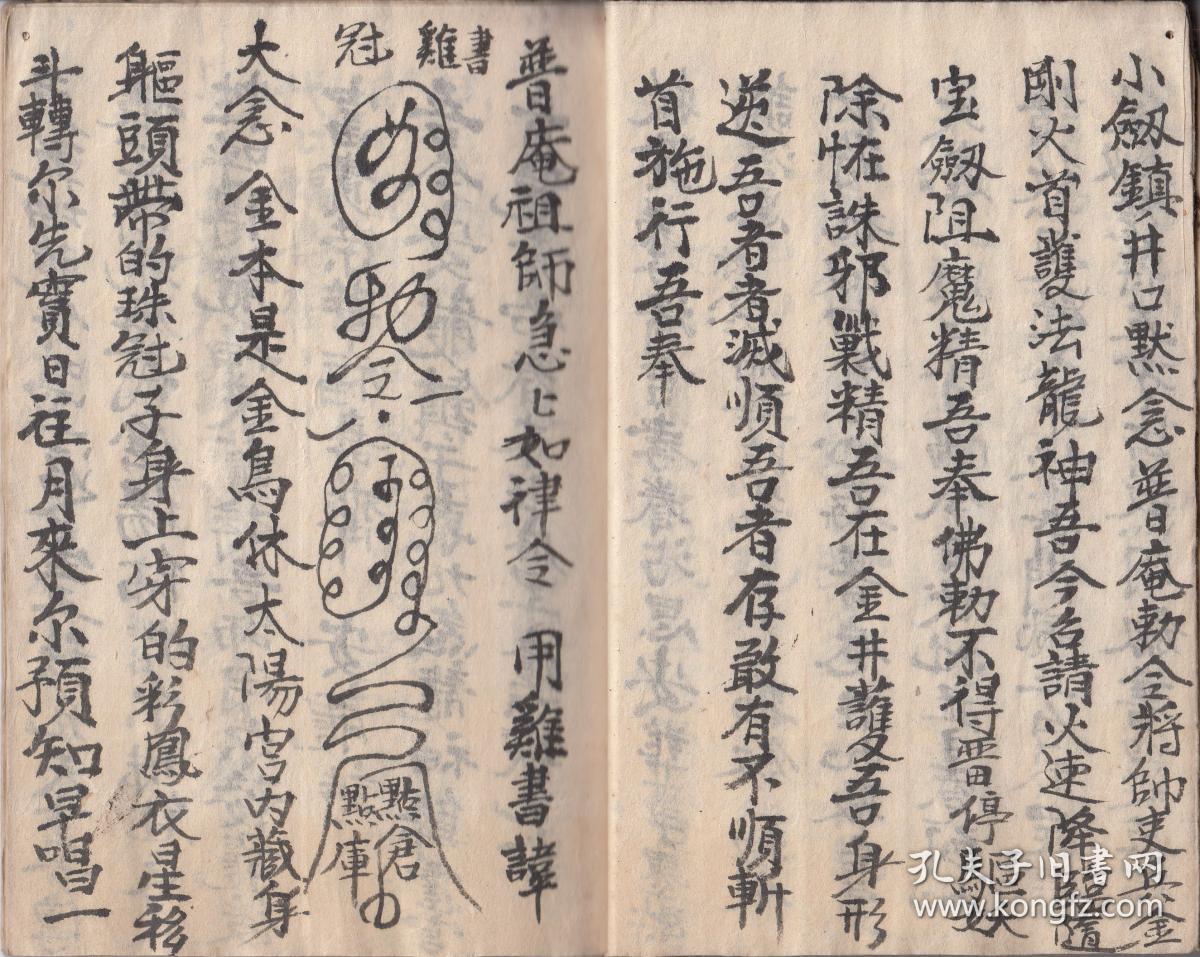 小劔鎮井口黙念普庵勅令將帥吏兵金
剛火首護法龍神吾今召請火速降臨隨
宝劔阻魔精吾奉佛勅不得晋停
除怪誅邪戰精吾在金井護吾身形
逆吾者者滅順吾者存敢有不順斬
首施行吾奉
普庵祖師急〻如律令 用雞書諱
書雞冠
勅令
點倉
點庫
大念 金本是金鳥休太陽宮内藏身
軀頭帶的珠冠子身上穿的彩鳳衣星移
斗轉尔先實日往月來尔預知早唱一
孔夫子旧书网
www.kongfz.com